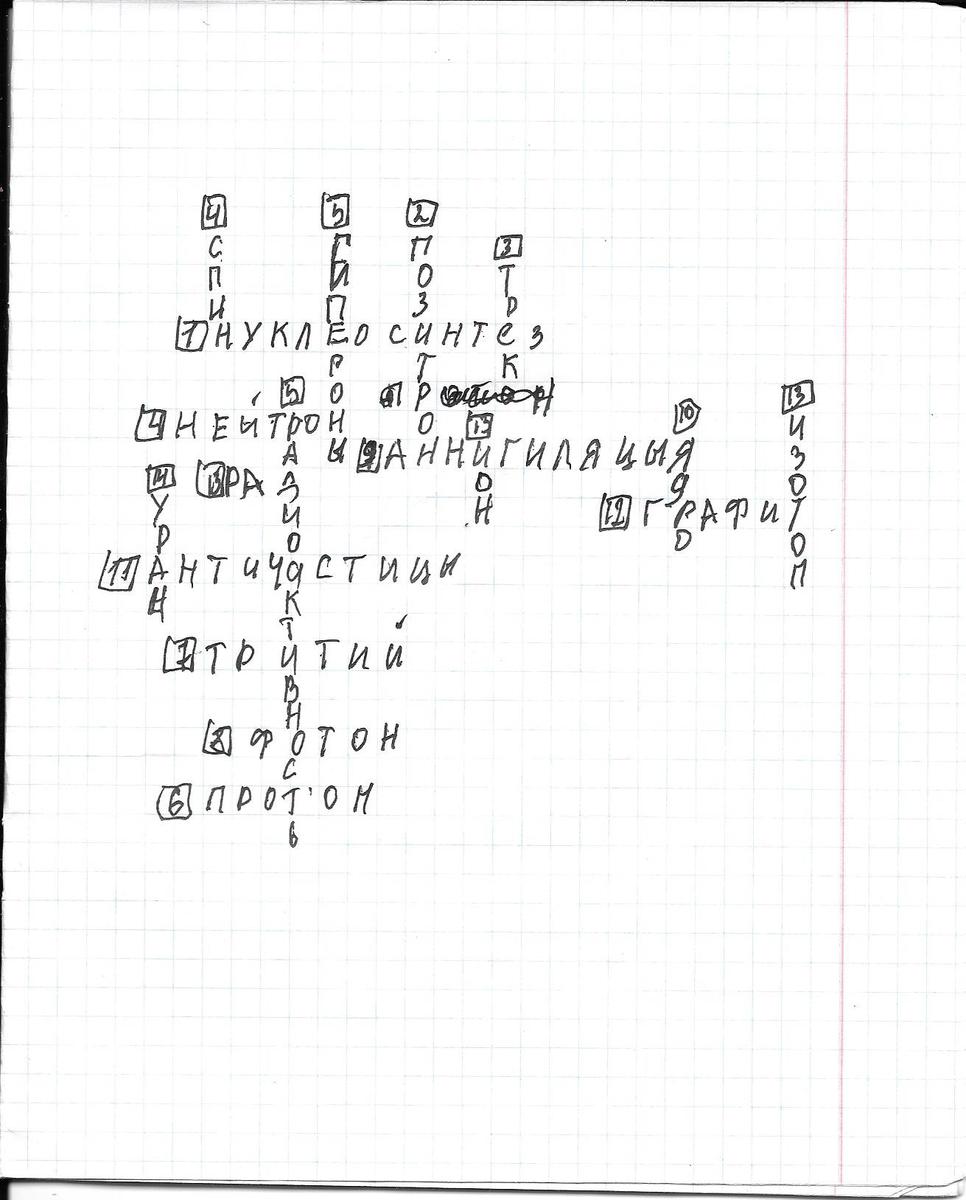 4 СПИН
5 ГИПЕРОНЫ
2 ПОЗИТРОН
3 ТРЕК
1 НУКЛЕОСИНТЕЗ
5 РАДИОАКТИВНОСТЬ
13 ИЗОТОП
4 НЕЙТРОН
15 ИОН
10 ЯДРО
9 АННИГИЛЯЦЫЯ
14 УРАН
РАД
12 ГРАФИТ
11 АНТИЧАСТИЦЫ
7 ТРИТИЙ
8 ФОТОН
6 ПРОТОН